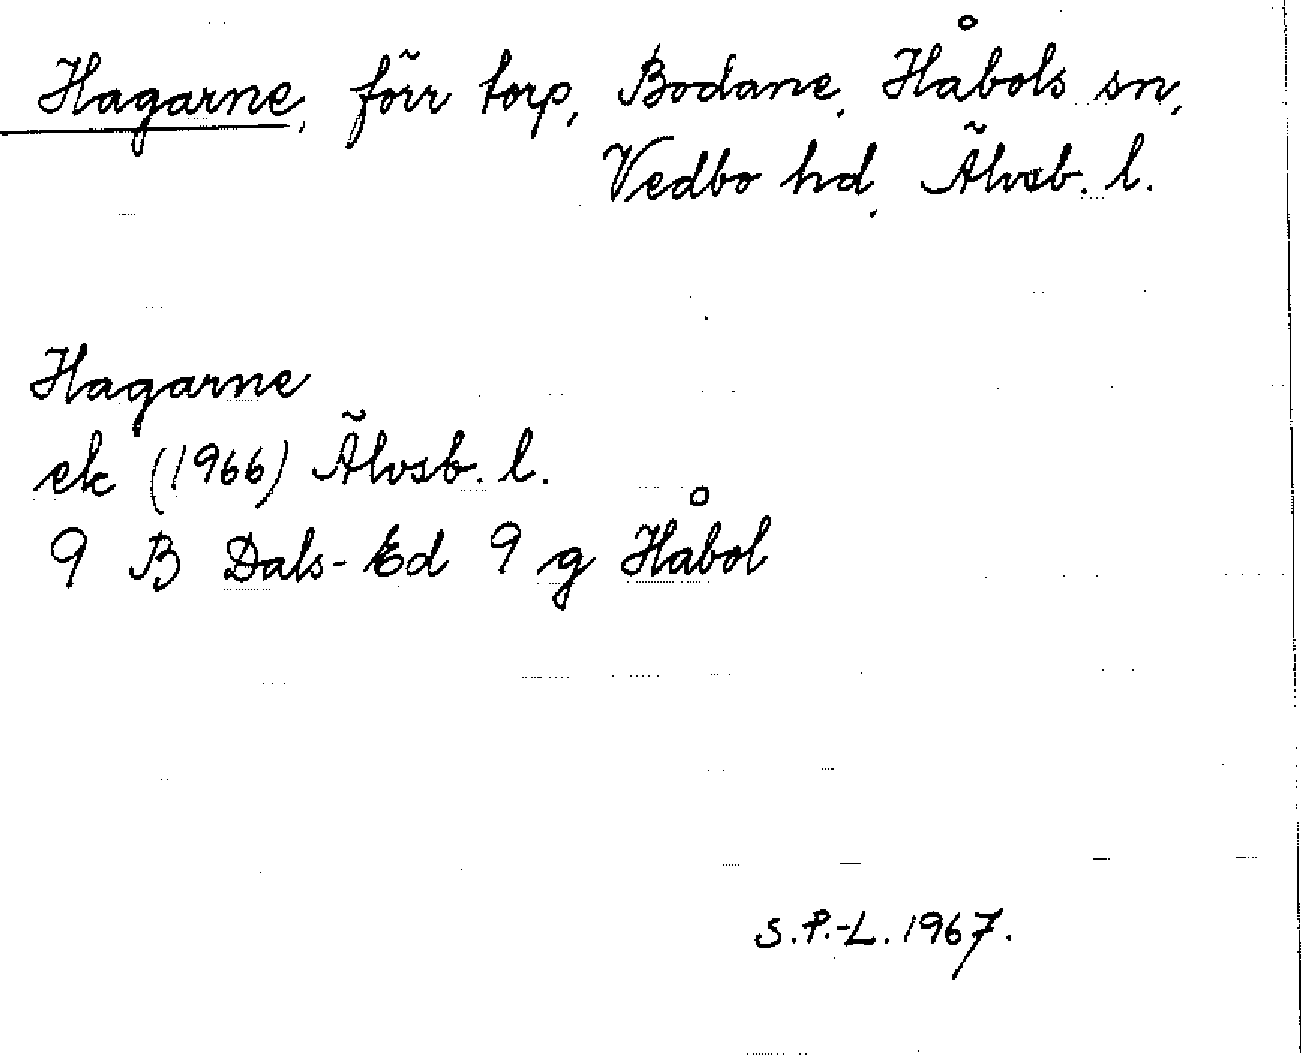 Hagarne, förr torp, Bodane, Håbols sn,
Vedbo hd, Älvsb. l.
Hagarne
ek (1966) Älvsb. l.
9 B Dals-Ed 9 g Håbol
S.P.-L. 1967.